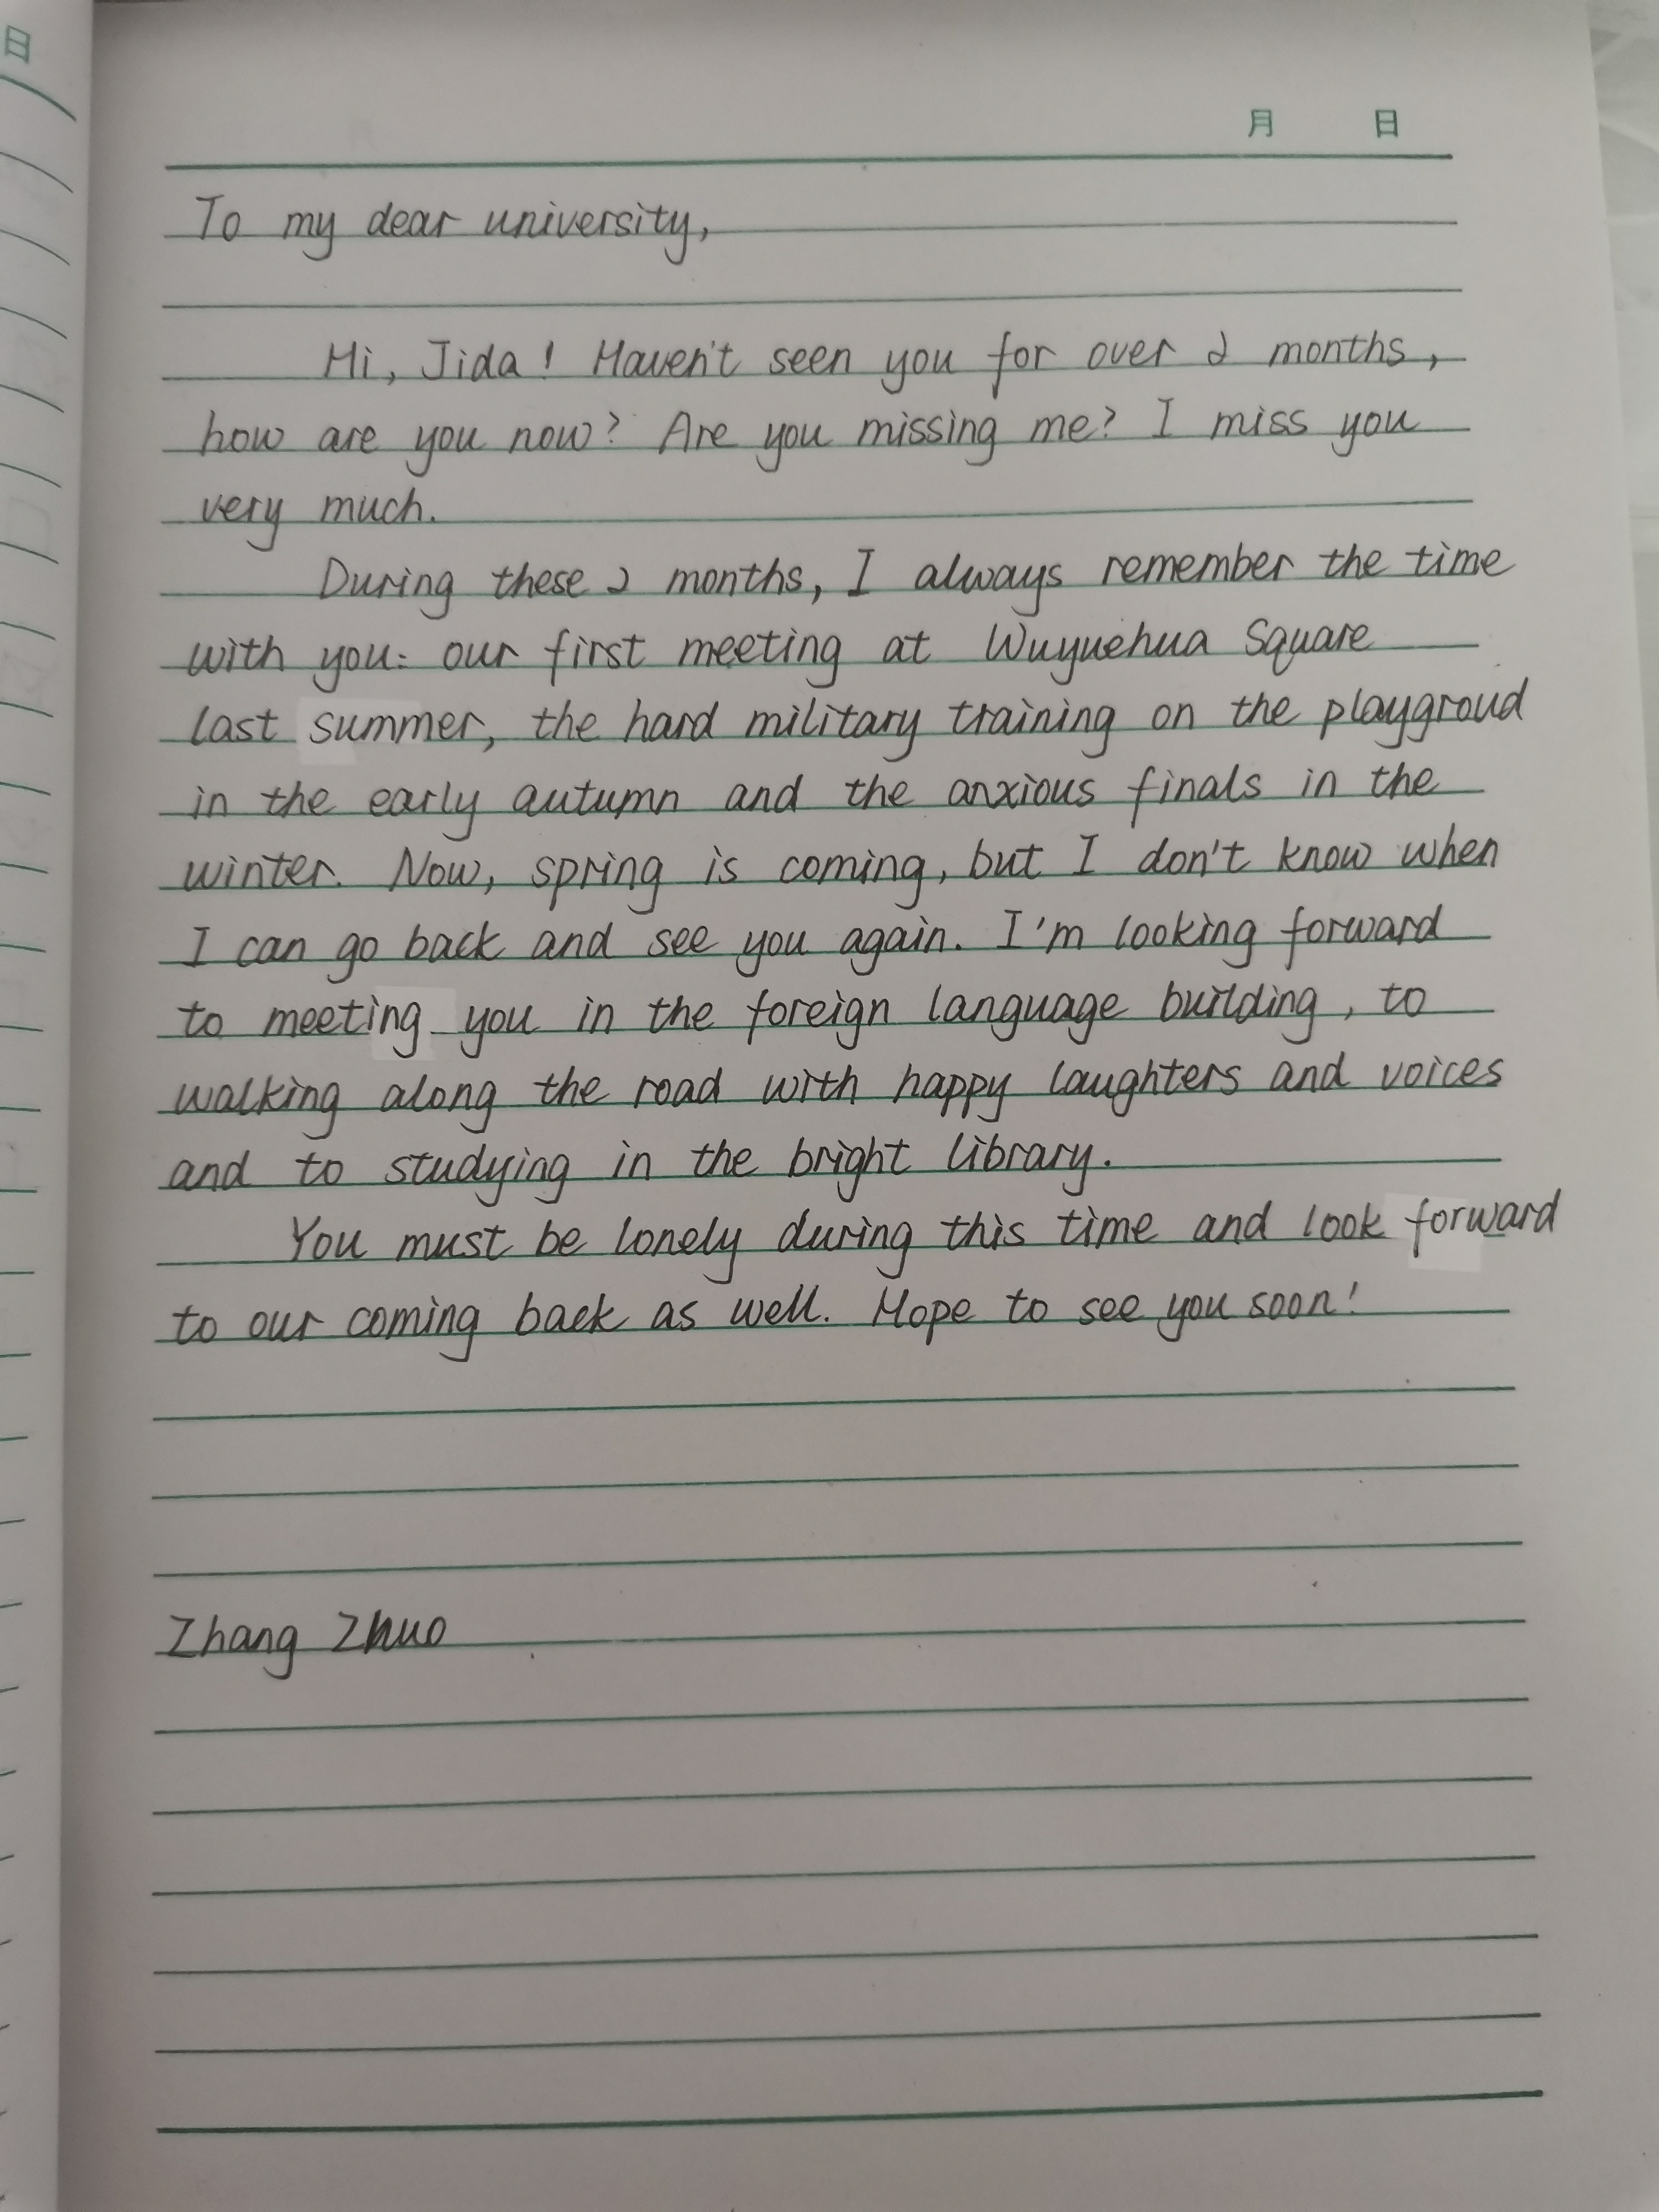 日
月 日
To my dear university,
Hi, Jida! Haven't seen you for over 2 months,
how are you now? Are you missing me? I miss you
very much.
During these 2 months, I always remember the time
with you: our first meeting at Wuyuehua Square
last summer, the hard military training on the playgroud
in the early autumn and the anxious finals in the
winter. Now, spring is coming, but I don't know when
I can go back and see you again. I'm looking forward
to meeting you in the foreign language building, to
walking along the road with happy laughters and voices
and to studying in the bright library.
You must be lonely during this time and look forward
to our coming back as well. Hope to see you soon!
Zhang Zhuo